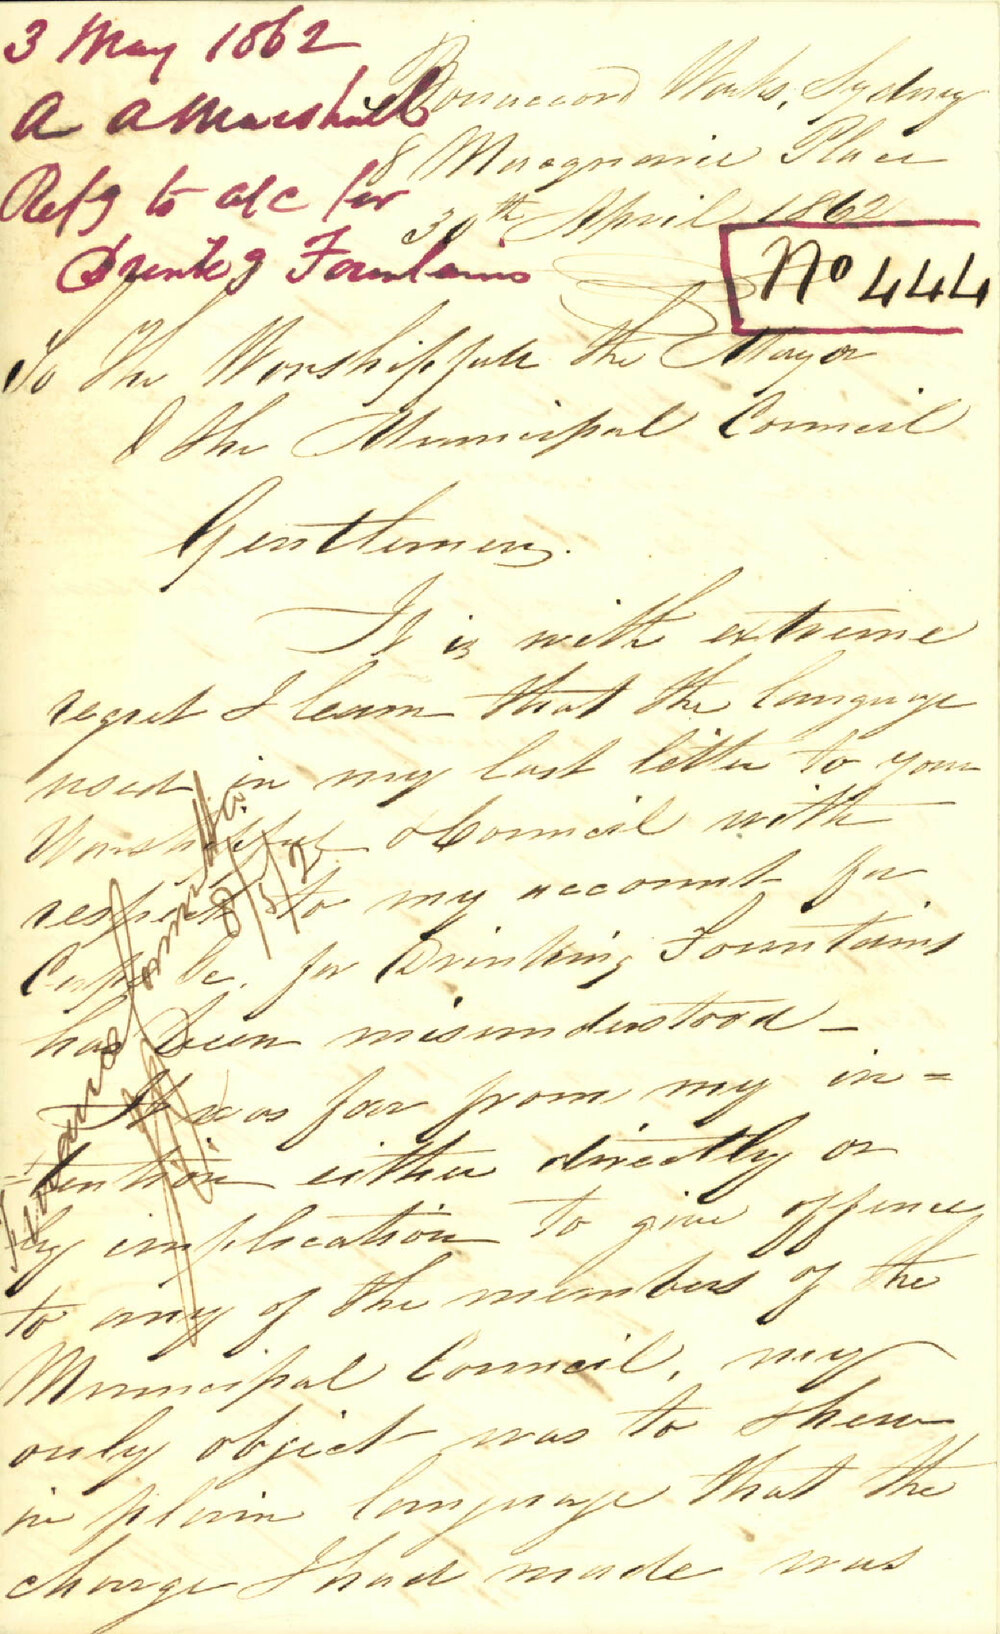 3 May 1862
A A Marshall
Refg to a/c for
Drinkg Fountains
Bonaccord Works, Sydney
8 Macquarie Place
30th April 1862
No 444
To The Worshipfull the Mayor
& the Municipal Council
Gentlemen,
It is with extreme
regret I learn that the language
used in my last letter to your
Worshipful & Council with
respect to my account for
Cups &c. for Drinking Fountains
has been misunderstood —
It was far from my in=
=tention either directly or
by implication to give offence
to any of the members of the
Municipal Council, my
only object was to shew
in plain language that the
charge I had made was
Finance Committee
8/5/2